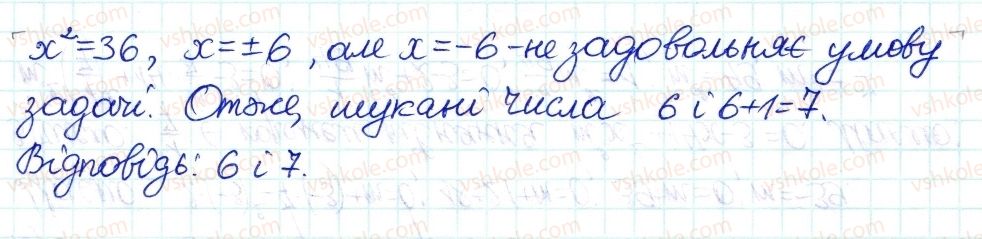 x²=36, x=±6, але x=-6 - не задовольняє умову
задачі. Отже, шукані числа 6 і 6+1=7.
Відповідь: 6 і 7.